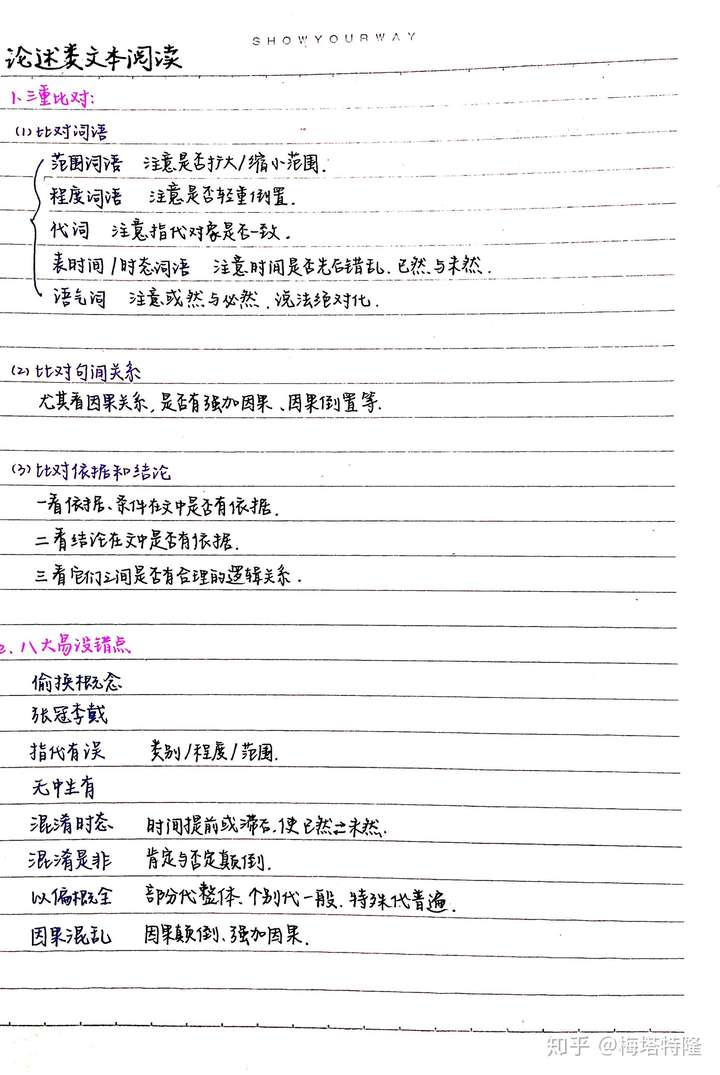 SHOWYOURWAY
论述类文本阅读
1.三重比对:
(1)比对词语
范围词语 注意是否扩大/缩小范围.
程度词语 注意是否轻重倒置.
代词 注意指代对象是否一致.
表时间/时态词语 注意时间是否先后错乱.已然与未然.
语气词 注意或然与必然.说法绝对化.
(2)比对句间关系
尤其看因果关系,是否有强加因果、因果倒置等.
(3)比对依据和结论
一看依据、条件在文中是否有依据.
二看结论在文中是否有依据.
三看它们之间是否有合理的逻辑关系.
2.八大易设错点
偷换概念
张冠李戴
指代有误 类别/程度/范围.
无中生有
混淆时态 时间提前或滞后,使已然=未然.
混淆是非 肯定与否定颠倒.
以偏概全 部分代整体、个别代一般、特殊代普遍.
因果混乱 因果颠倒、强加因果.
知乎 @梅塔特隆